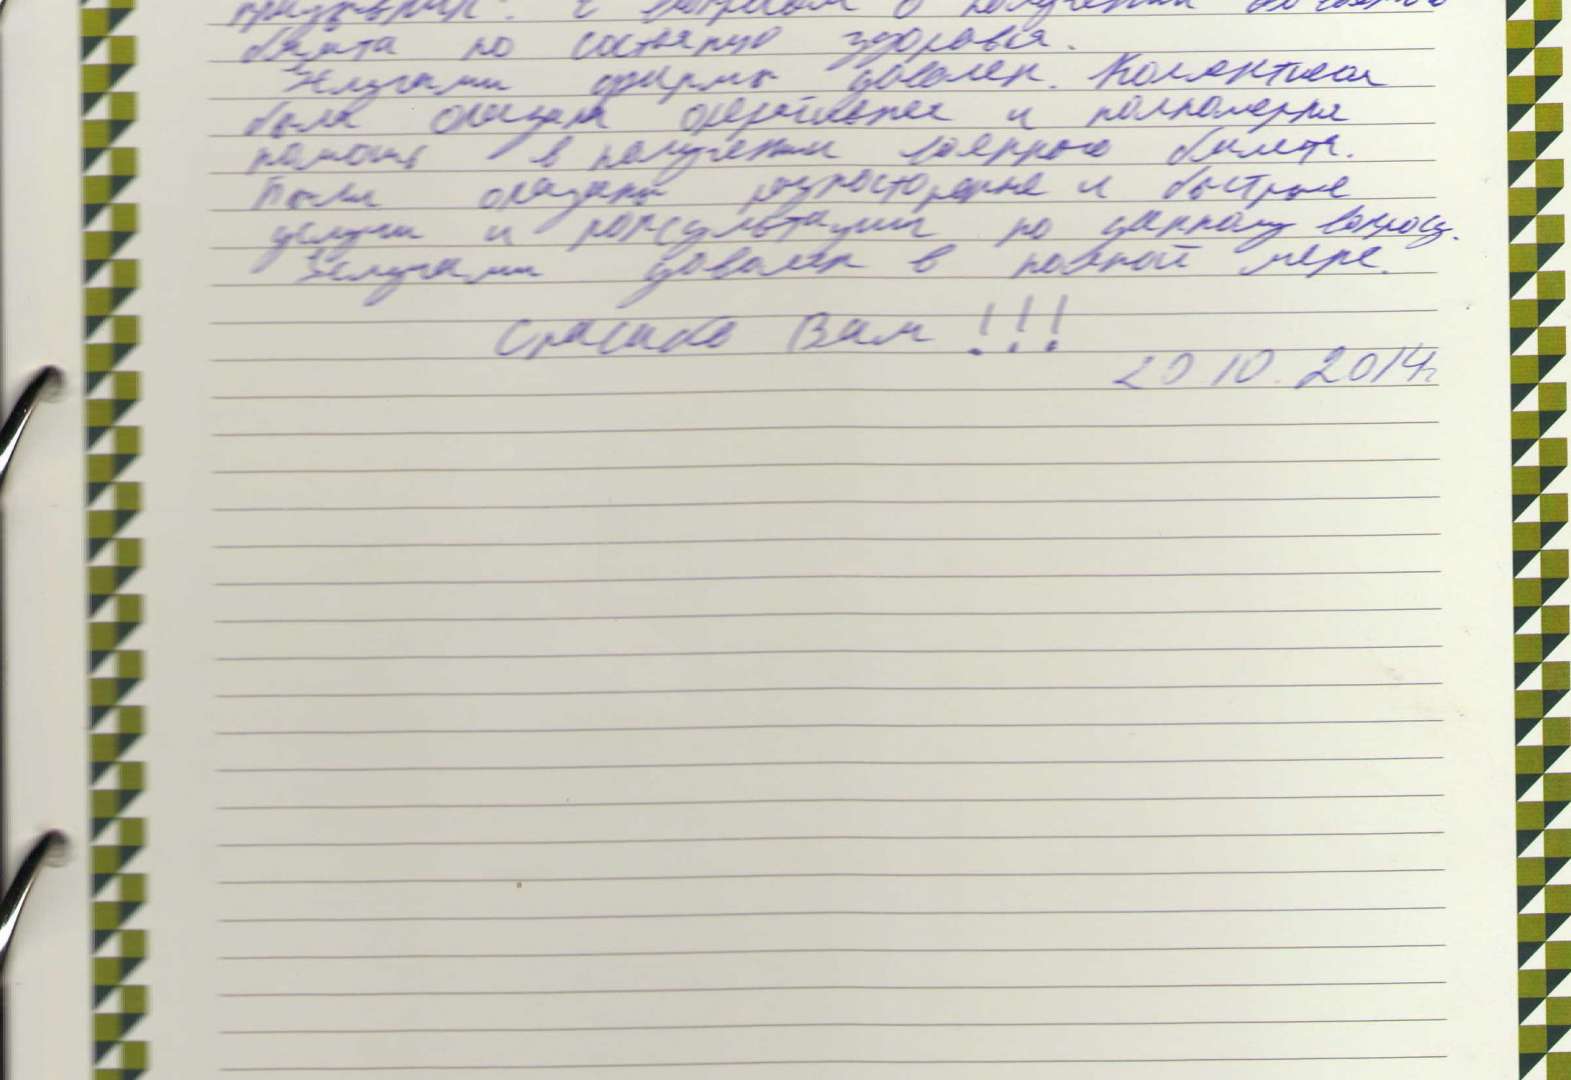 призывник". С вопросом о получении военного
билета по состоянию здоровья.
Услугами фирмы доволен. Коллективом
была оказана оперативная и полномерная
помощь в получении военного билета.
Были оказаны разносторонние и быстрые
услуги и консультации по данному вопросу.
Услугами доволен в полной мере.
Спасибо Вам !!!
20.10.2014г